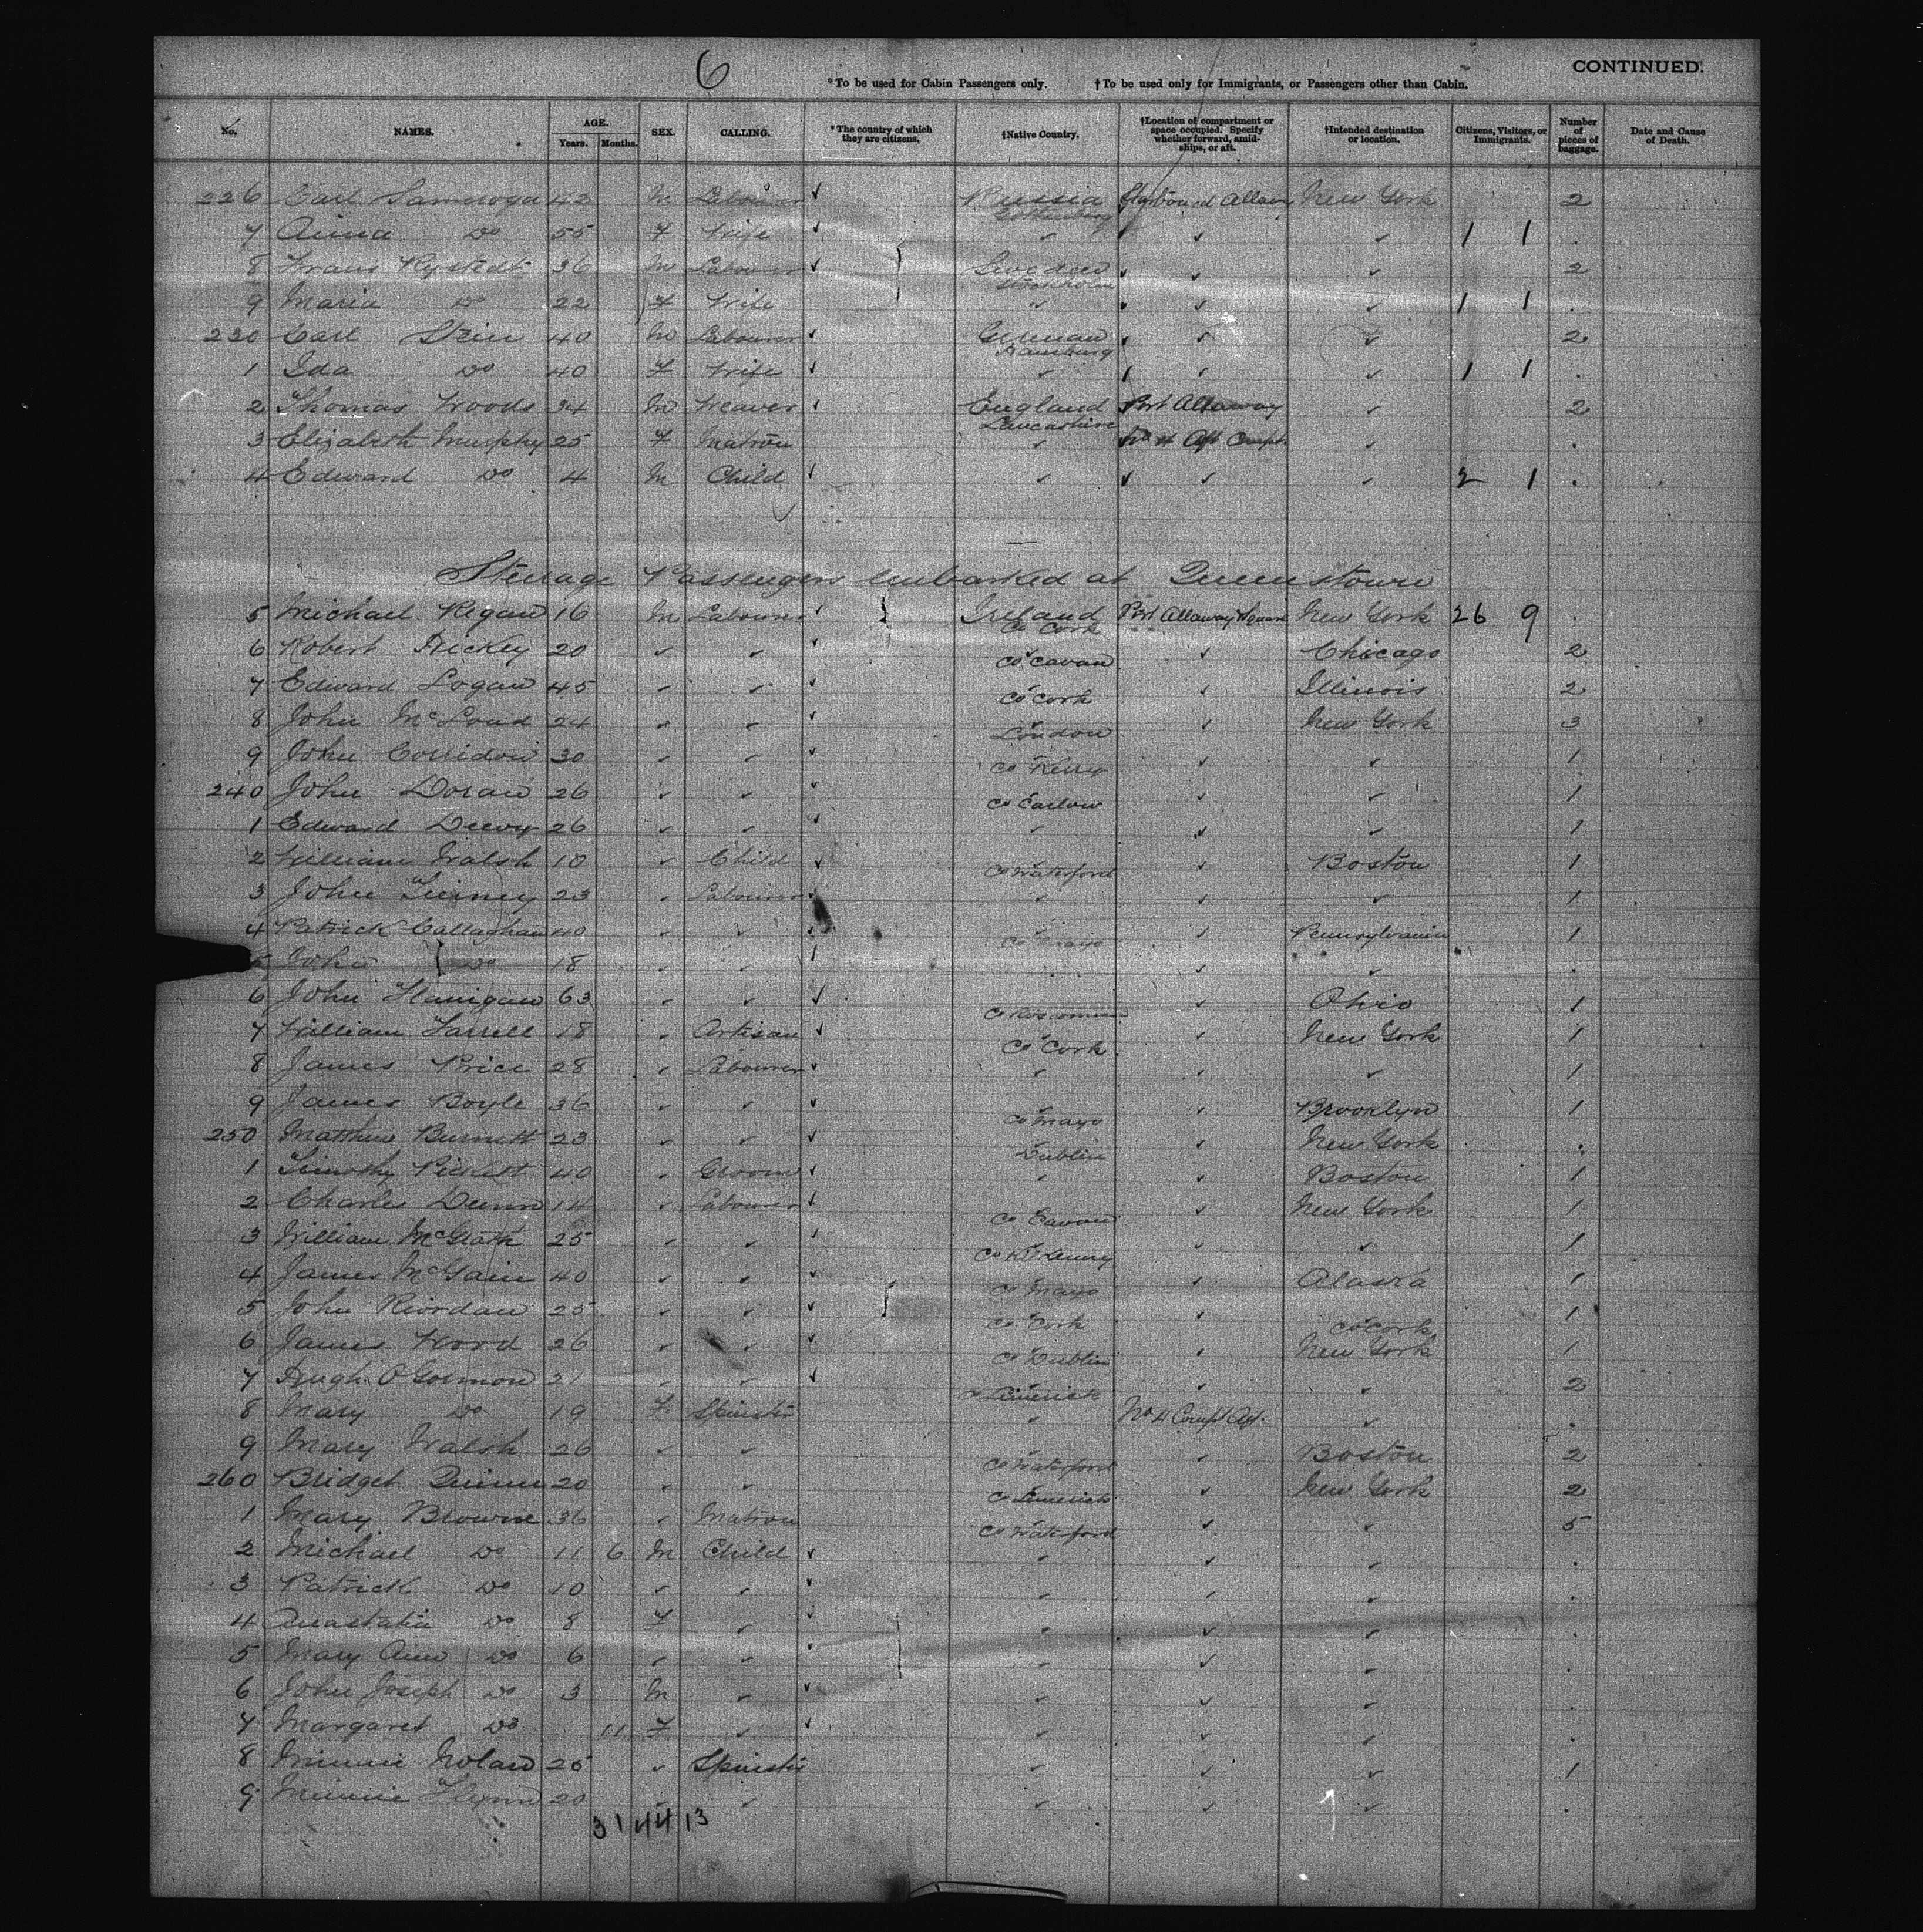 6
*To be used for Cabin Passengers only. †To be used only for Immigrants, or Passengers other than Cabin. CONTINUED.
No. NAMES. AGE. Years. Months. SEX. CALLING. *The country of which they are citizens. †Native Country. †Location of compartment or space occupied. Specify whether forward, amidships, or aft. †Intended destination or location. Citizens, Visitors, or Immigrants. Number of pieces of baggage. Date and Cause of Death.
226 Carl 42 M Labourer ✓ Russia New York 2
7 Do 55 F Wife ✓ ✓ ✓ ✓ 1 1 .
8 Frans Rystedt 36 M Labourer ✓ Sweden Stockholm ✓ ✓ 2
9 Maria Do 22 F Wife ✓ ✓ ✓ 1 1 .
230 Carl Stein 40 M Labourer ✓ German Hamburg ✓ ✓ 2
1 Ida Do 40 F Wife ✓ ✓ ✓ ✓ 1 1 .
2 Thomas Woods 34 M Weaver ✓ England Lancashire Port Allaway ✓ 2
3 Elizabeth Murphy 25 F Matron ✓ No 4 Aft Compt ✓ .
4 Edward Do 4 M Child ✓ ✓ ✓ ✓ 2 1 .
Steerage Passengers embarked at Queenstown
5 Michael Regan 16 M Labourer ✓ Ireland Co Cork Port Allaway New York 26 9 .
6 Robert Hickey 20 ✓ ✓ ✓ Co Cavan ✓ Chicago 2
7 Edward Logan 45 ✓ ✓ ✓ Co Cork ✓ Illinois 2
8 John McLoud 24 ✓ ✓ ✓ London ✓ New York 3
9 John Corridon 30 ✓ ✓ ✓ Co Kerry ✓ ✓ 1
240 John Doran 26 ✓ ✓ ✓ Co Carlow ✓ ✓ 1
1 Edward Deevy 26 ✓ ✓ ✓ ✓ ✓ ✓ 1
2 William Walsh 10 ✓ Child ✓ Co Waterford ✓ Boston 1
3 John Tierney 23 ✓ Labourer ✓ ✓ ✓ ✓ 1
4 Patrick Callaghan 40 ✓ ✓ ✓ Co Mayo ✓ Pennsylvania 1
5 John Do 18 ✓ ✓ ✓ ✓ .
6 John Flanigan 63 ✓ ✓ ✓ Co Roscommon ✓ Ohio 1
7 William Farrell 18 ✓ Artisan ✓ Co Cork ✓ New York 1
8 James Price 28 ✓ Labourer ✓ ✓ ✓ ✓ 1
9 James Boyle 36 ✓ ✓ ✓ Co Mayo ✓ Brooklyn 1
250 Matthew Burnett 23 ✓ ✓ ✓ Dublin ✓ New York .
1 Timothy Pickett 40 ✓ Groom ✓ ✓ ✓ Boston 1
2 Charles Dunn 14 ✓ Labourer ✓ Co Cavan ✓ New York 1
3 William McGrath 25 ✓ ✓ ✓ Co Kilkenny ✓ ✓ 1
4 James McGain 40 ✓ ✓ ✓ Co Mayo ✓ Alaska 1
5 John Riordan 25 ✓ ✓ ✓ Co Cork ✓ Co Cork 1
6 James Wood 26 ✓ ✓ ✓ Co Dublin ✓ New York 1
7 Hugh O'Gorman 21 ✓ ✓ ✓ Co Limerick ✓ ✓ 2
8 Mary Do 19 F Spinster ✓ No 4 Compt Aft. ✓ .
9 Mary Walsh 26 ✓ ✓ Co Waterford ✓ Boston 2
260 Bridget Quinn 20 ✓ ✓ Co Limerick ✓ New York 2
1 Mary Browne 36 ✓ Matron Co Waterford ✓ ✓ 5
2 Michael Do 11 6 M Child ✓ ✓ ✓ ✓ .
3 Patrick Do 10 ✓ ✓ ✓ ✓ ✓ ✓ .
4 Anastatia Do 8 F ✓ ✓ ✓ ✓ ✓ .
5 Mary Ann Do 6 ✓ ✓ ✓ ✓ ✓ ✓ .
6 John Joseph Do 3 M ✓ ✓ ✓ ✓ ✓ .
7 Margaret Do 11 F ✓ ✓ ✓ ✓ ✓ .
8 Minnie Nolan 25 ✓ Spinster ✓ ✓ ✓ 1
9 Minnie Flynn 20 ✓ ✓ ✓ ✓ ✓ .
31 44 13